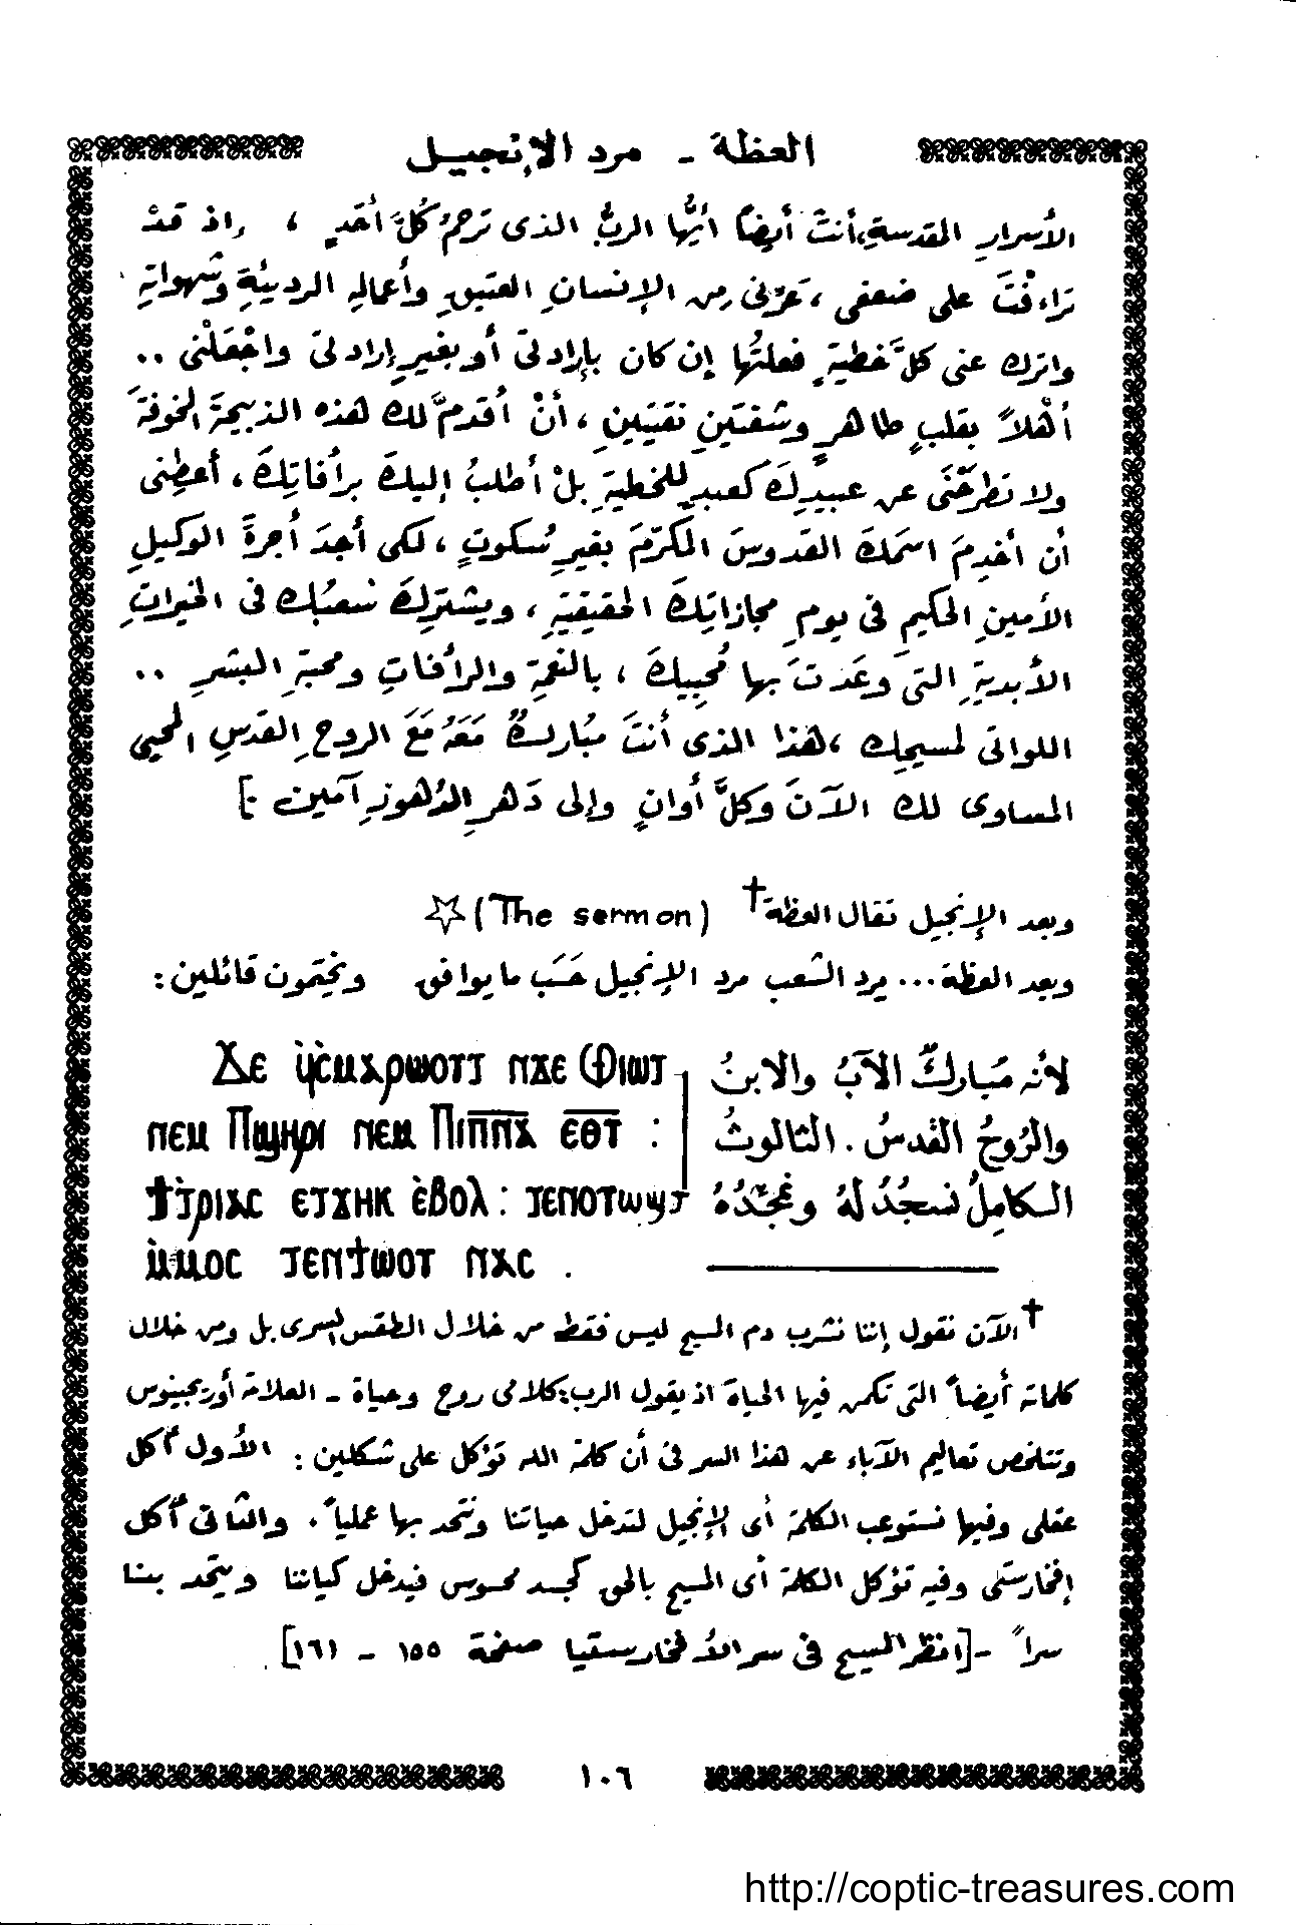 العظة - مرد الإنجيل
الأسرارِ المقدسةِ، أنتَ أيضاً أيُّها الربُّ الذى تَرحمُ كُلَّ أَحَدٍ ، وإذ قدْ
تراءفْتَ على ضعفى ، عَرِّنى مِن الإنسانِ العتيقِ وأعمالِهِ الرديئةِ وشهواتِهِ
واترك عنى كلَّ خَطيةٍ فعلتُها إن كان بإرادتى أو بغيرِ إرادتى واجْعَلْنى ..
أهْلاً بقلبٍ طاهرٍ وشفتَينِ نقيتينِ ، أنْ أُقدمَّ لك هذه الذبيحةَ المخوفةَ
ولا تطرحْنَى عن عبيدِكَ كعبدٍ للخطيةِ بلْ أطلبُ إليكَ برأفاتِكَ ، أعطِنى
أن أخدِمَ اسمَكَ القدوسَ المكرّمَ بغيرِ سُكوتٍ ، لكى أجدَ أُجرةَ الوكيلِ
الأمينِ الحكيمِ فى يومِ مجازاتِكَ الحقيقيةِ ، ويشترِكَ شعبُك فى الخيراتِ
الأبديةِ التى وعَدتَ بها مُحبِيكَ ، بالنعمةِ والرأفاتِ ومحبةِ البشرِ ..
اللواتى لمسيحِك ، هذا الذى أنتَ مُباركٌ مَعَهُ مَعَ الروحِ القدسِ المحيى
المساوى لك الآنَ وكلَّ أوانٍ وإلى دَهرِ الدُهورِ آمين .]
وبعد الإنجيل تقال العظة † (The sermon) ☆
وبعد العظة ... يرد الشعب مرد الإنجيل حَسَب ما يوافق ويختمون قائلين :
Ϫⲉ ϥ̀ⲥⲙⲁⲣⲱⲟⲩⲧ ⲛϫⲉ Ⲫⲓⲱⲧ لأنه مُباركٌ الآبُ والابنُ
ⲛⲉⲙ Ⲡϣⲏⲣⲓ ⲛⲉⲙ Ⲡⲓⲡ̅ⲛ̅ⲁ̅ ⲉ̅ⲑ̅ⲩ̅ : والرُوحُ القدسُ . الثالوثُ
ϯⲧ̀ⲣⲓⲁⲥ ⲉⲧϫⲏⲕ ⲉ̀ⲃⲟⲗ : ⲧⲉⲛⲟⲩⲱϣⲧ الكامِلُ نسجُدُ لهُ ونمجّدُهُ
ⲙ̀ⲙⲟⲥ ⲧⲉⲛϯⲱⲟⲩ ⲛⲁⲥ .
† الآن نقول إننا نشرب دم المسيح ليس فقط من خلال الطقس السرى بل ومن خلال
كلماته أيضاً التى تكمن فيها الحياة اذ يقول الرب : كلامى روح وحياة - العلامة أوريجينوس
وتتلخص تعاليم الآباء عن هذا السر فى أن كلمة الله تؤكل على شكلين : الأول أكل
عقلى وفيها نستوعب الكلمة أى الإنجيل لتدخل حياتنا ونتحد بها عملياً . والثانى أكل
إفخارستى وفيه تؤكل الكلمة أى المسيح بالحق كجسد محسوس فيدخل كياننا ويتحد بنا
سراً - [انظر المسيح فى سر الأفخارستيا صفحة ١٥٥ - ١٦١] .
١٠٦
http://coptic-treasures.com